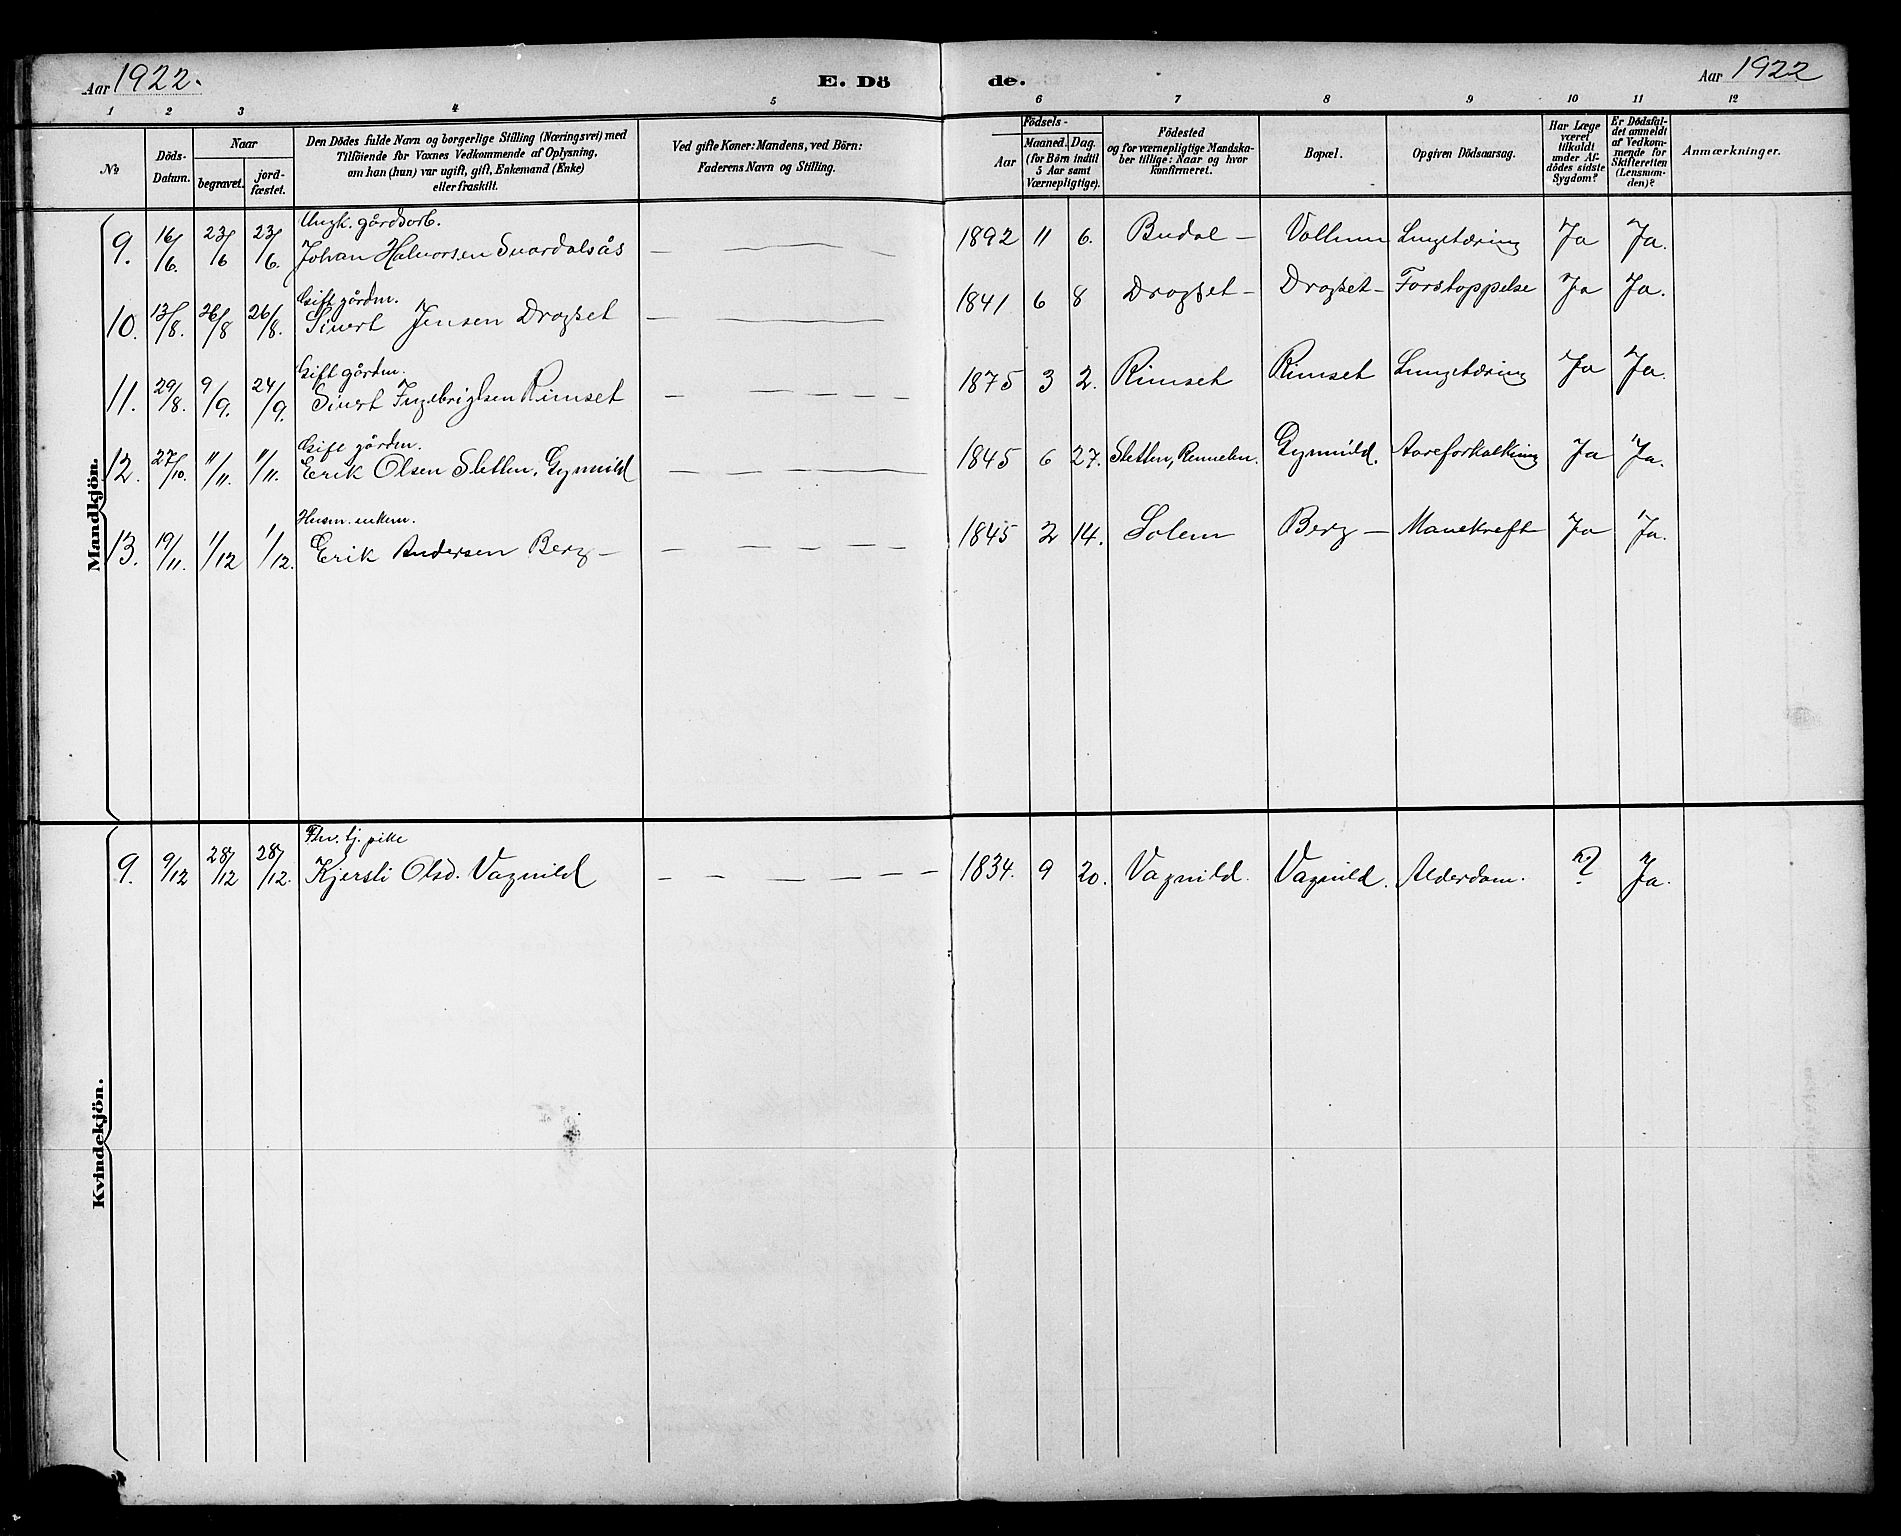 Aar 1922.
E. Dö
de.
Aar 1922
1 2 3 4 5 6 7 8 9 10 11 12
№
Döds-Datum.
Naar
begravet.
jord-fæstet.
Den Dödes fulde Navn og borgerlige Stilling (Næringsvei) med
Tilföiende for Voxnes Vedkommende af Oplysning,
om han (hun) var ugift, gift, Enkemand (Enke)
eller fraskilt.
Ved gifte Koner: Mandens, ved Börn:
Faderens Navn og Stilling.
Födsels-
Aar
Maaned. Dag.
(for Börn indtil
5 Aar samt
Værnepligtige).
Födested
og for værnepligtige Mandska-
ber tillige: Naar og hvor
konfirmeret.
Bopæl.
Opgiven Dödsaarsag.
Har Læge
været
tilkaldt
under Af-
dödes sidste
Sygdom?
Er Dödsfal-
det anmeldt
af Vedkom-
mende for
Skifteretten
(Lensman-
den)?
Anmærkninger.
Mandkjön.
Ungk. gårdsarb.
9. 16/6. 23/6 23/6. Johan Halvorsen Svardalsås — 1892 11 6. Budal — Vollum Lungetæring Ja Ja.
Gift gårdm.
10. 13/8. 26/8 26/8. Sivert Jensen Dragset — 1841 6 8 Dragset — Dragset — Forstoppelse Ja Ja.
Gift gårdm.
11. 29/8. 9/9. 24/9. Sivert Ingebrigtsen Rimset — 1875 3 2. Rimset Rimset Lungetæring Ja Ja.
Gift gårdm.
12. 27/10. 11/11. 11/11. Erik Olsen Sletten, Gynnild — 1845 6 27. Sletten, Rennebu. Gynnild. Aareforkalkning Ja Ja.
Husm. enkem.
13. 19/11. 1/12 1/12. Erik Andersen Berg — 1845 2 14. Solem Berg — Mavekreft Ja Ja.
Kvindekjön.
tj. pike
9. 9/12 28/12 28/12. Kjersti Olsd. Vagnild — 1834. 9 20. Vagnild. Vagnild. Alderdom. ? Ja.